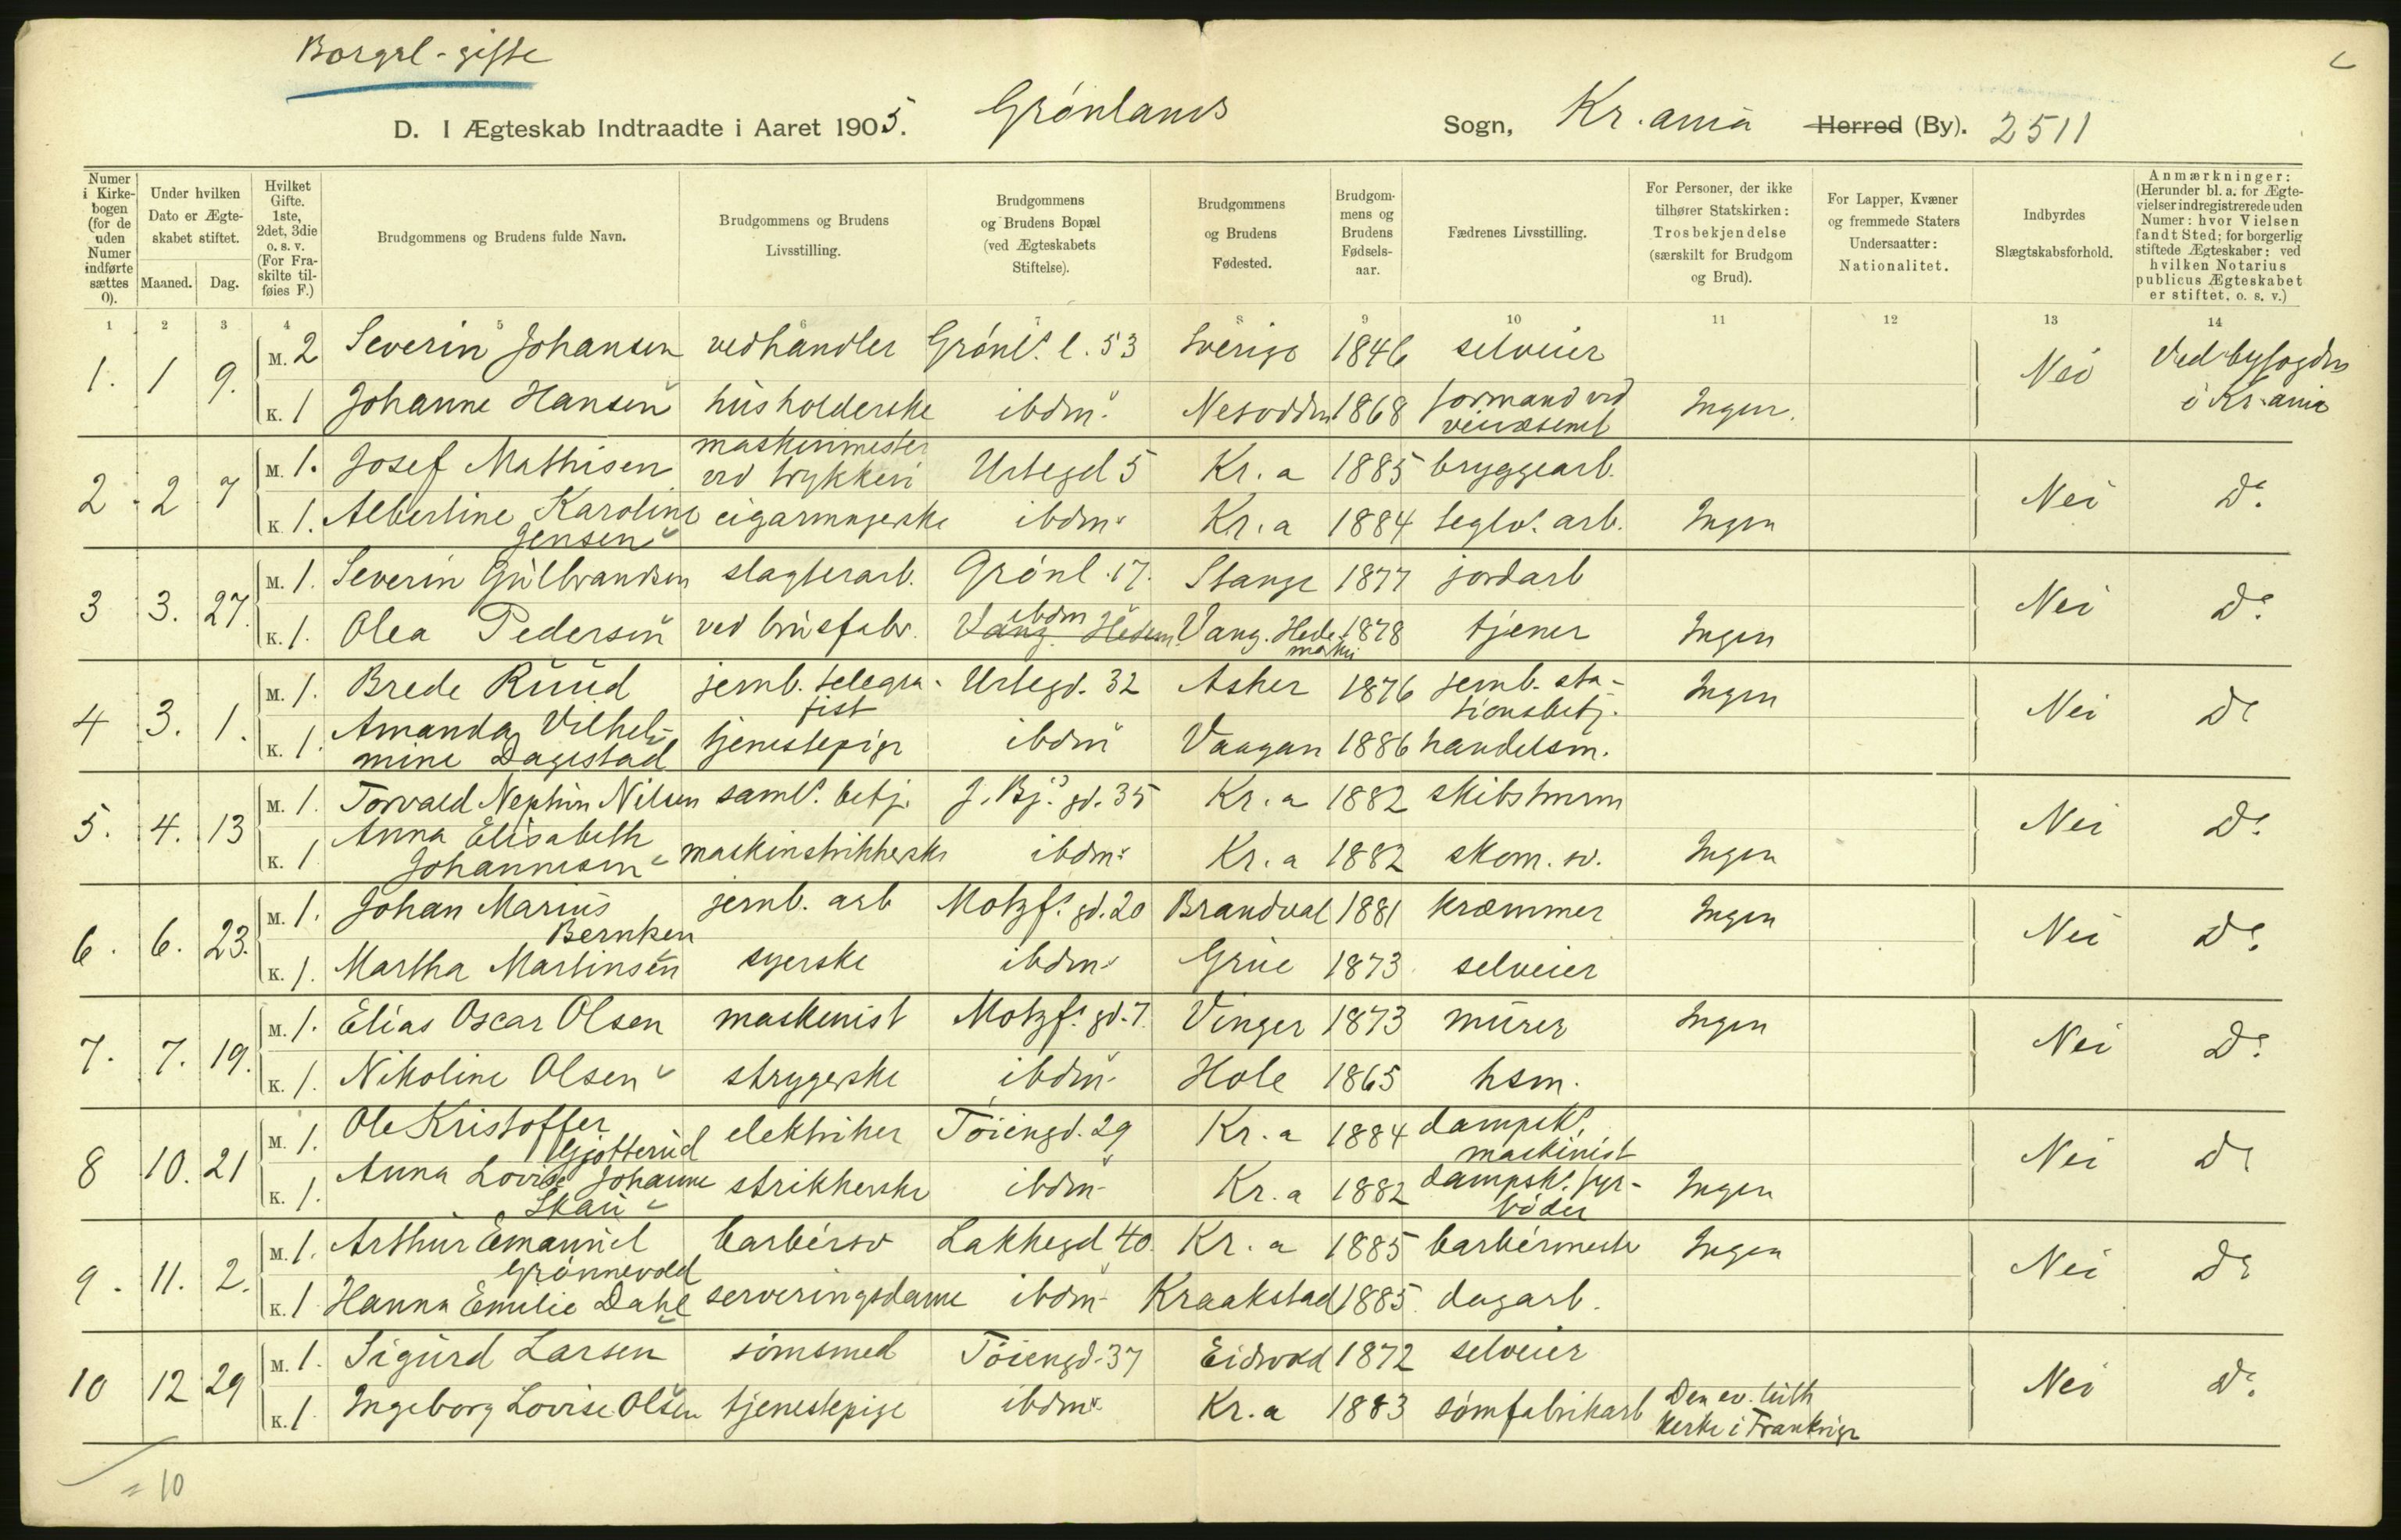 Borgel-gifte
D. I Ægteskab Indtraadte i Aaret 1905. Grønlands Sogn, Kr.ania Herred (By). 2511
Numer i Kirkebogen (for de uden Numer indførte sættes 0).
Under hvilken Dato er Ægteskabet stiftet.
Maaned. Dag.
Hvilket Gifte. 1ste, 2det, 3die o. s. v. (For Fraskilte tilføies F.)
Brudgommens og Brudens fulde Navn.
Brudgommens og Brudens Livsstilling.
Brudgommens og Brudens Bopæl (ved Ægteskabets Stiftelse).
Brudgommens og Brudens Fødested.
Brudgommens og Brudens Fødselsaar.
Fædrenes Livsstilling.
For Personer, der ikke tilhører Statskirken: Trosbekjendelse (særskilt for Brudgom og Brud).
For Lapper, Kvæner og fremmede Staters Undersaatter: Nationalitet.
Indbyrdes Slægtskabsforhold.
Anmærkninger: (Herunder bl. a. for Ægtevielser indregistrerede uden Numer: hvor Vielsen fandt Sted; for borgerlig stiftede Ægteskaber: ved hvilken Notarius publicus Ægteskabet er stiftet, o. s. v.)
1 2 3 4 5 6 7 8 9 10 11 12 13 14
1. 1 9. M. 2 Severin Johansen vedhandler Grønl. l. 53 Sverige 1846 selveier Nei Ved byfogden i Kr.ania
K. 1 Johanne Hansen husholderske ibdm. Nesodden 1868 formand ved veivæsenet Ingen.
2. 2 7 M. 1. Josef Mathisen maskinmester ved trykkeri Urtegd 5 Kr.a 1885 bryggearb. Nei Do.
K. 1. Albertine Karoline Jensen cigarmagerske ibdm. Kr.a 1884 teglv. arb. Ingen
3 3. 27. M. 1. Severin Gulbrandsen slagterarb. Grønl. 17. Stange 1877 jordarb Nei Do.
K. 1. Olea Pedersen ved brusfabr. Vang Hedem. ibdm Vang. Hedemarken 1878 tjener Ingen
4 3. 1. M. 1. Brede Ruud jernb. telegrafist Urtegd. 32 Asker 1876 jernb. stationsbetj. Ingen Nei Do
K. 1. Amanda Vilhelmine Dagestad tjenestepige ibdm Vaagan 1886 handelsm.
5. 4. 13 M. 1. Torvald Nephin Nilsen saml. betj. J. Bj. gd. 35 Kr.a 1882 skibstmrm Nei Do.
K. 1 Anna Elisabeth Johannesen maskinstrikkerske ibdm. Kr.a 1882 skom. sv. Ingen
6. 6. 23. M. 1. Johan Marius Berntsen jernb. arb Motzf. gd. 20 Brandval 1881 kræmmer Ingen Nei Do.
K. 1. Martha Martinsen syerske ibdm. Grue 1873 selveier
7. 7. 19. M. 1. Elias Oscar Olsen maskinist Motzf. gd. 7. Vinger 1873 murer Ingen Nei Do.
K. 1. Nikoline Olsen strygerske ibdm. Hole 1865 hsm.
8 10. 21 M. 1. Ole Kristoffer Gjotterud elektriker Tøiengd. 29 Kr.a 1884 dampsk. maskinist Nei Do
K. 1. Anna Lovise Johanne Skau strikkerske ibdm. Kr.a 1882 dampsk. fyrbøder Ingen
9. 11. 2. M. 1. Arthur Emanuel Grønnevold barbérsv Lakkegd 40. Kr.a 1885 barbérmester Ingen Nei Do
K. 1 Hanna Emilie Dahl serveringsdame ibdm Kraakstad 1885. dagarb.
10 12 29 M. 1. Sigurd Larsen sømsmed Tøiengd. 37 Eidsvold 1872 selveier Nei Do.
K. 1. Ingeborg Lovise Olsen tjenestepige ibdm. Kr.a 1883 sømfabrikarb Den ev. luth kirke i Frankrige
= 10